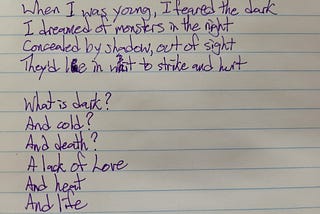 When I was young, I feared the dark
I dreamed of monsters in the night
Concealed by shadow, out of sight
They'd lie in wait to strike and hurt
What is dark?
And cold?
And death?
A lack of Love
And heat
And life